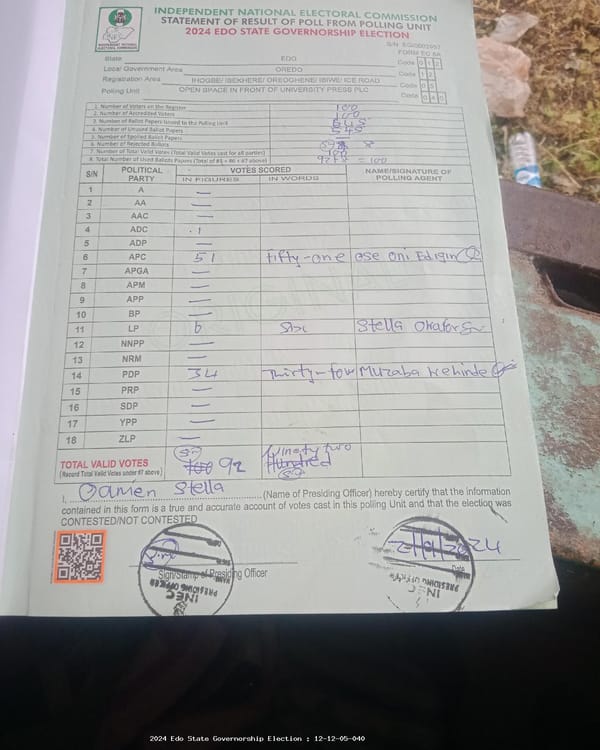 INDEPENDENT NATIONAL ELECTORAL COMMISSION
STATEMENT OF RESULT OF POLL FROM POLLING UNIT
2024 EDO STATE GOVERNORSHIP ELECTION
FORM EC 8A
State EDO Code 012
Local Government Area OREDO Code 12
Registration Area IHOGBE/ ISEKHERE/ OREOGHENE/ IBIWE/ ICE ROAD Code 05
Polling Unit OPEN SPACE IN FRONT OF UNIVERSITY PRESS PLC Code 040
1. Number of Voters on the Register 100
2. Number of Accredited Voters 100
3. Number of Ballot Papers Issued to the Polling Unit 645
4. Number of Unused Ballot Papers 545
5. Number of Spoiled Ballot Papers —
6. Number of Rejected Ballots 8
7. Number of Total Valid Votes (Total Valid Votes cast for all parties)
8. Total Number of Used Ballots Papers (Total of #5 + #6 + #7 above) = 100
S/N POLITICAL PARTY VOTES SCORED NAME/SIGNATURE OF POLLING AGENT
IN FIGURES IN WORDS
1 A —
2 AA —
3 AAC —
4 ADC 1
5 ADP —
6 APC 51 Fifty-one Ose Oni Edigin
7 APGA —
8 APM —
9 APP —
10 BP —
11 LP 6 Six Stella Okafor
12 NNPP —
13 NRM —
14 PDP 34 Thirty-four Muzaba Kehinde
15 PRP —
16 SDP —
17 YPP —
18 ZLP —
TOTAL VALID VOTES 92 Ninety two
(Record Total Valid Votes under #7 above) Hundred
I, Oamen Stella (Name of Presiding Officer) hereby certify that the information
contained in this form is a true and accurate account of votes cast in this polling Unit and that the election was
CONTESTED/NOT CONTESTED
Sign/Stamp of Presiding Officer
Date
INEC
PRESIDING OFFICER
INEC
PRESIDING OFFICER
2024 Edo State Governorship Election : 12-12-05-040